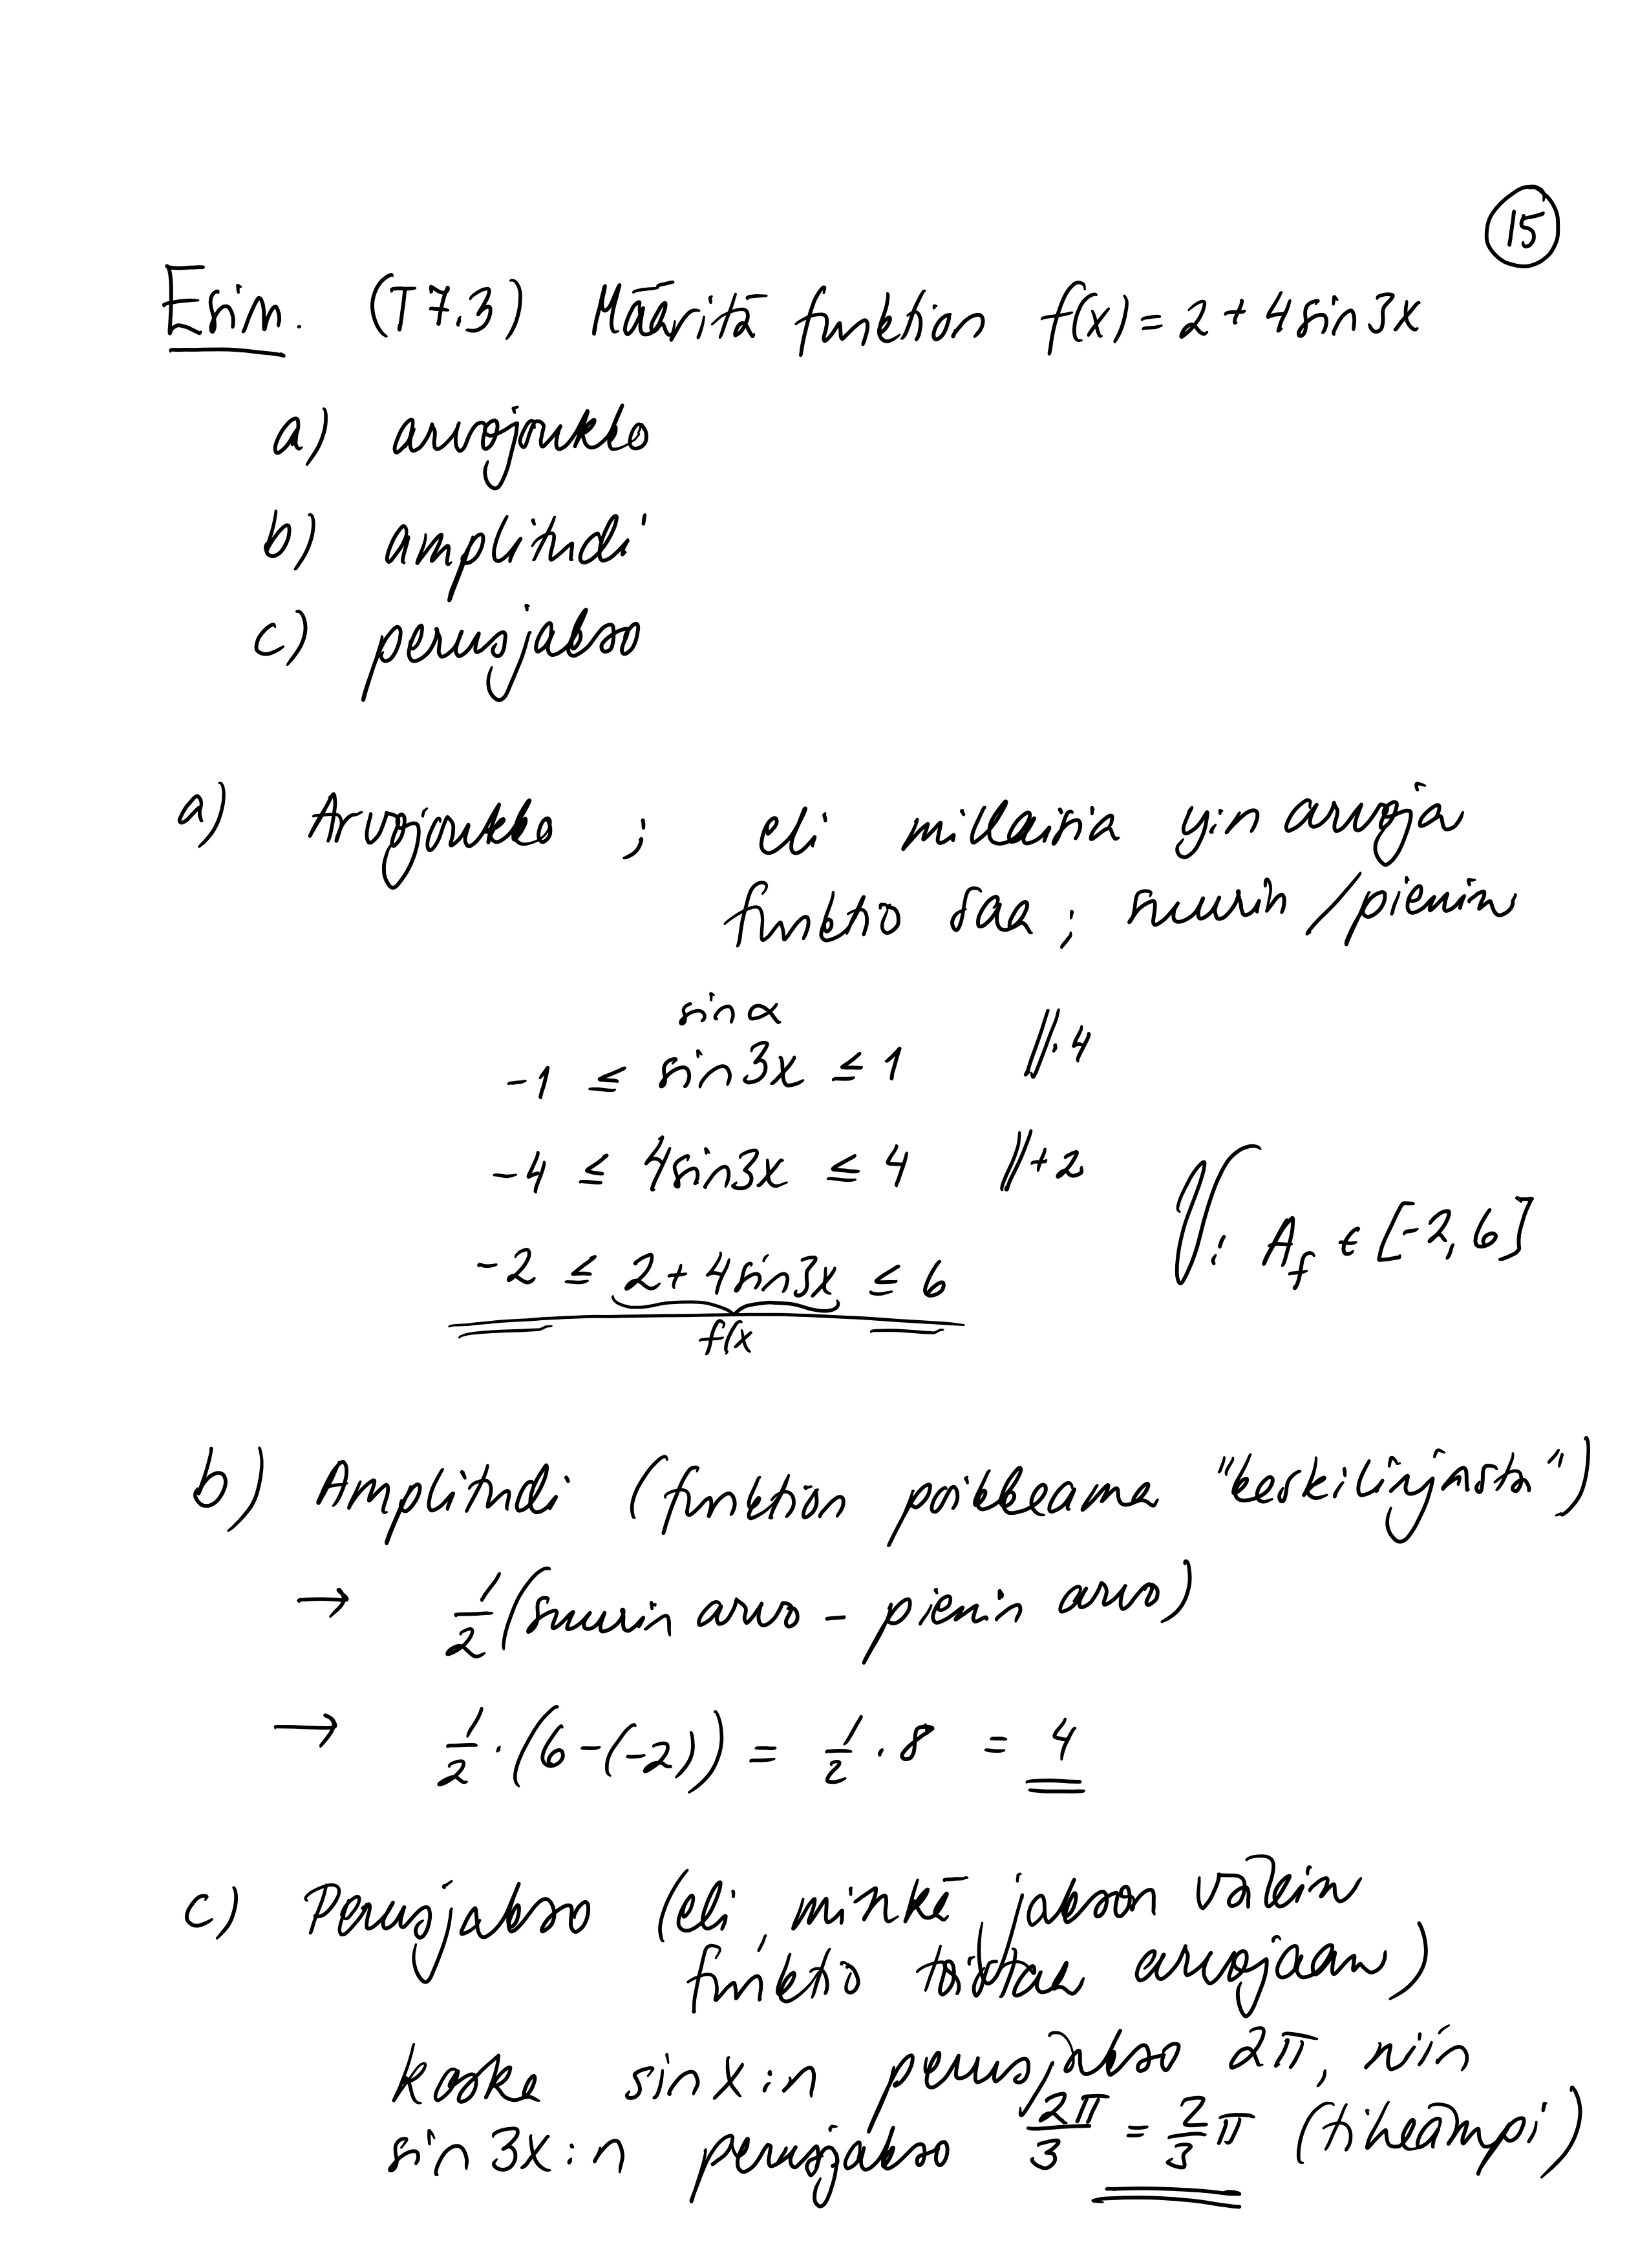 15
Esim. (T 7.3) Määritä funktion f(x) = 2 + 4sin3x
a) arvojoukko
b) amplitudi
c) perusjakso
a) Arvojoukko ; eli millaisia y:n arvoja
funktio saa ; suurin / pienin
sin α
-1 ≤ sin3x ≤ 1 ||·4
-4 ≤ 4sin3x ≤ 4 ||+2
-2 ≤ 2 + 4sin3x ≤ 6 V: A_f ∈ [-2, 6]
f(x
b) Amplitudi (funktion poikkeama "keskilinjasta")
→ 1/2 (suurin arvo - pienin arvo)
→ 1/2 · (6-(-2)) = 1/2 · 8 = 4
c) Perusjakso (eli, minkä jakson välein
funktio toistaa arvojaan)
koska sin x:n perusjakso 2π, niin
sin 3x:n perusjakso 2π/3 = 2/3 π (tiheämpi)